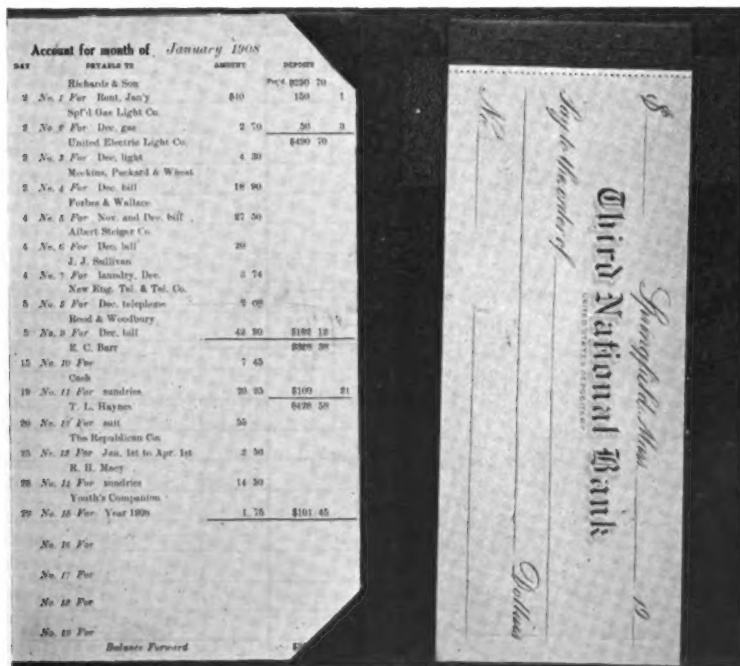 Account for month of January 1908
DAY PAYABLE TO AMOUNT DEPOSITS
Richards & Son $250 70
2 No. 1 For Rent, Jan'y $40 150 1
Spf'd Gas Light Co.
2 No. 2 For Dec. gas 2 70 50 3
United Electric Light Co. $450 70
2 No. 3 For Dec. light 4 30
Meekins, Packard & Wheat
2 No. 4 For Dec. bill 18 90
Forbes & Wallace
4 No. 5 For Nov. and Dec. bill 27 50
Albert Steiger Co.
4 No. 6 For Dec. bill 20
J. J. Sullivan
4 No. 7 For laundry, Dec. 3 74
New Eng. Tel. & Tel. Co.
5 No. 8 For Dec. telephone 2
Reed & Woodbury
5 No. 9 For Dec. bill 90 12
E. C. Barr 58
15 No. 10 For 7 45
Cash
19 No. 11 For sundries 20 $100 21
T. L. Haynes $428 58
20 No. 12 For suit 55
The Republican Co.
25 No. 13 For Jan. 1st to Apr. 1st 2 50
R. H. Macy
28 No. 14 For sundries 14 50
Youth's Companion
29 No. 15 For Year 1908 1 75 $101 45
No. 16 For
No. 17 For
No. 18 For
No. 19 For
Balance Forward
Springfield, Mass 19
Third National Bank
UNITED STATES DEPOSITARY
Pay to the order of
Dollars
No.
$